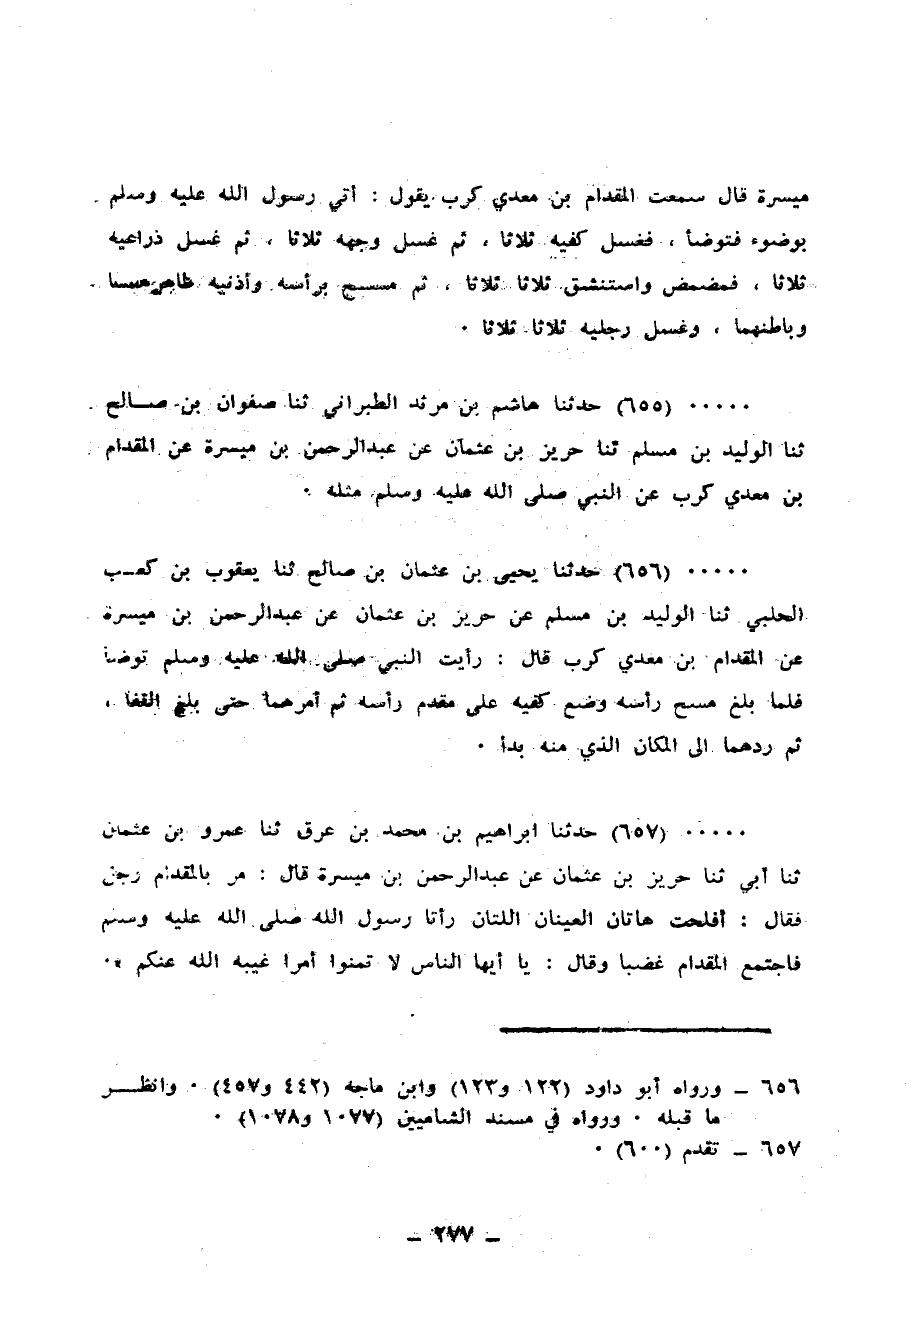 ميسرة قال سمعت المقدام بن معدي كرب يقول : أتي رسول الله عليه وسلم
بوضوء فتوضأ ، فغسل كفيه ثلاثا ، ثم غسل وجهه ثلاثا ، ثم غسل ذراعيه
ثلاثا ، فمضمض واستنشق ثلاثا ثلاثا ، ثم مسح برأسه وأذنيه ظاهرهما
وباطنهما ، وغسل رجليه ثلاثا ثلاثا ٠
٠٠٠٠٠ (٦٥٥) حدثنا هاشم بن مرثد الطبراني ثنا صفوان بن صالح
ثنا الوليد بن مسلم ثنا حريز بن عثمان عن عبدالرحمن بن ميسرة عن المقدام
بن معدي كرب عن النبي صلى الله عليه وسلم مثله ٠
٠٠٠٠٠ (٦٥٦) حدثنا يحيى بن عثمان بن صالح ثنا يعقوب بن كعب
الحلبي ثنا الوليد بن مسلم عن حريز بن عثمان عن عبدالرحمن بن ميسرة
عن المقدام بن معدي كرب قال : رأيت النبي صلى الله عليه وسلم توضأ
فلما بلغ مسح رأسه وضع كفيه على مقدم رأسه ثم أمرهما حتى بلغ القفا ،
ثم ردهما الى المكان الذي منه بدأ ٠
٠٠٠٠٠ (٦٥٧) حدثنا ابراهيم بن محمد بن عرق ثنا عمرو بن عثمان
ثنا أبي ثنا حريز بن عثمان عن عبدالرحمن بن ميسرة قال : مر بالمقدام رجل
فقال : أفلحت هاتان العينان اللتان رأتا رسول الله صلى الله عليه وسلم
فاجتمع المقدام غضبا وقال : يا أيها الناس لا تمنوا أمرا غيبه الله عنكم »٠
٦٥٦ ـ ورواه أبو داود (١٢٢ و١٢٣) وابن ماجه (٤٤٢ و٤٥٧) ٠ وانظر
ما قبله ٠ ورواه في مسند الشاميين (١٠٧٧ و١٠٧٨) ٠
٦٥٧ ـ تقدم (٦٠٠) ٠
ـ ٢٧٧ ـ